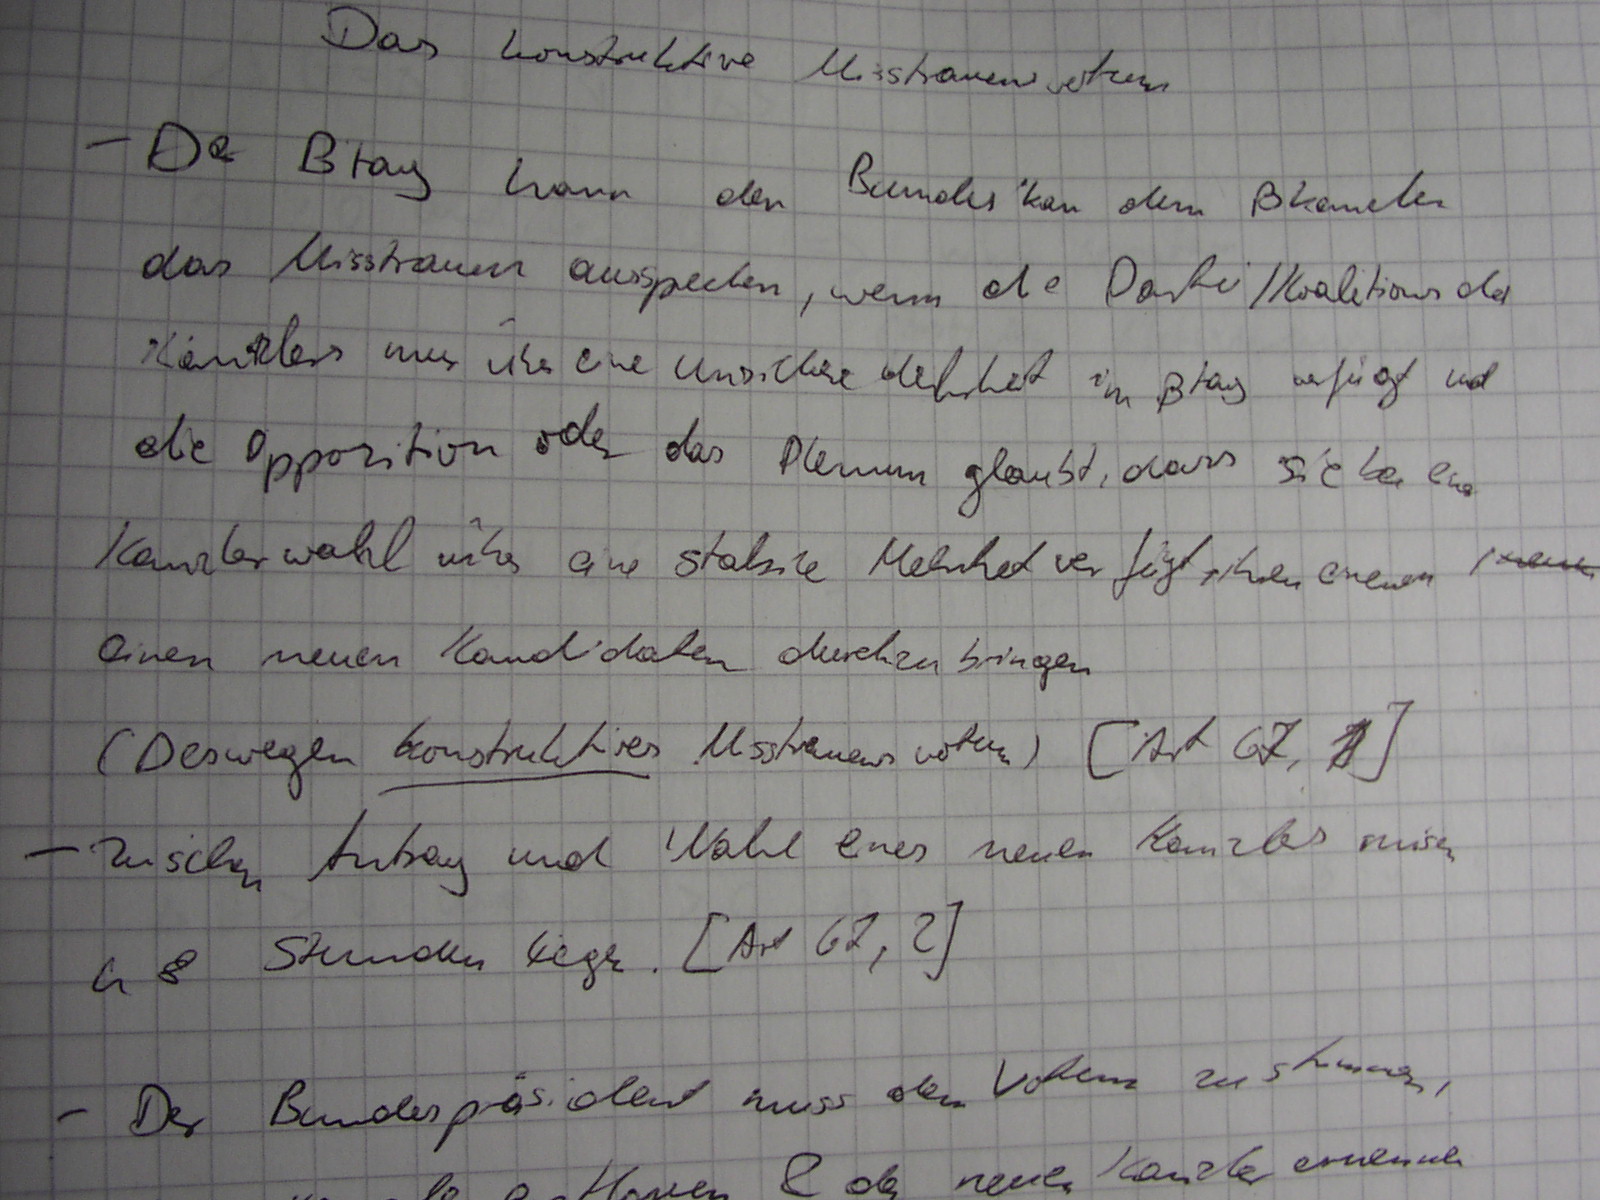 Das konstruktive Misstrauensvotum
- Der Btag kann den Bundeskan dem BKanzler
das Misstrauen aussprechen, wenn die Partei/Koalitions des
Kanzlers nur über eine unsichere Mehrheit im Btag verfügt und
die Opposition oder das Plenum glaubt, dass sie bei einer
Kanzlerwahl über eine stabile Mehrheit verfügt,
einen neuen Kandidaten durchzubringen
(Deswegen konstruktives Misstrauensvotum) [Art 67, 1]
- Zwischen Antrag und Wahl eines neuen Kanzlers müssen
48 Stunden liegen. [Art 67, 2]
- Der Bundespräsident muss dem Votum zustimmen,
& den neuen Kanzler ernennen